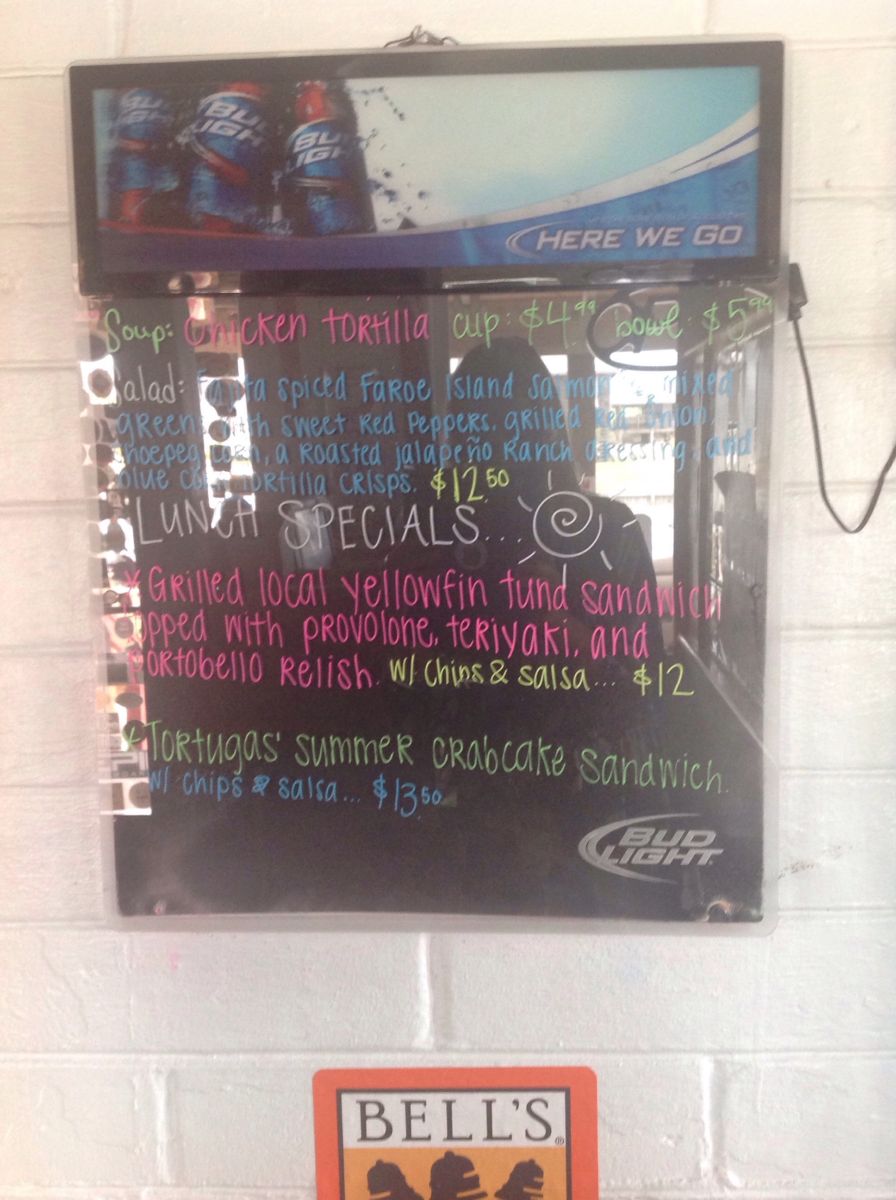 BUD LIGHT
BUD LIGHT
BUD LIGHT
HERE WE GO
Soup: Chicken tortilla cup: $4.99 bowl: $5.99
Salad: Fajita spiced Faroe Island Salmon mixed
greens with sweet Red Peppers, grilled Red Onion,
shoepeg corn, a Roasted jalapeño Ranch dressing, and
blue corn tortilla crisps. $12.50
LUNCH SPECIALS...
*Grilled local yellowfin tuna sandwich
topped with provolone, teriyaki, and
portobello Relish. w/ chips & salsa... $12
*Tortugas' summer crabcake sandwich.
w/ chips & salsa... $13.50
BUD
LIGHT
BELL'S